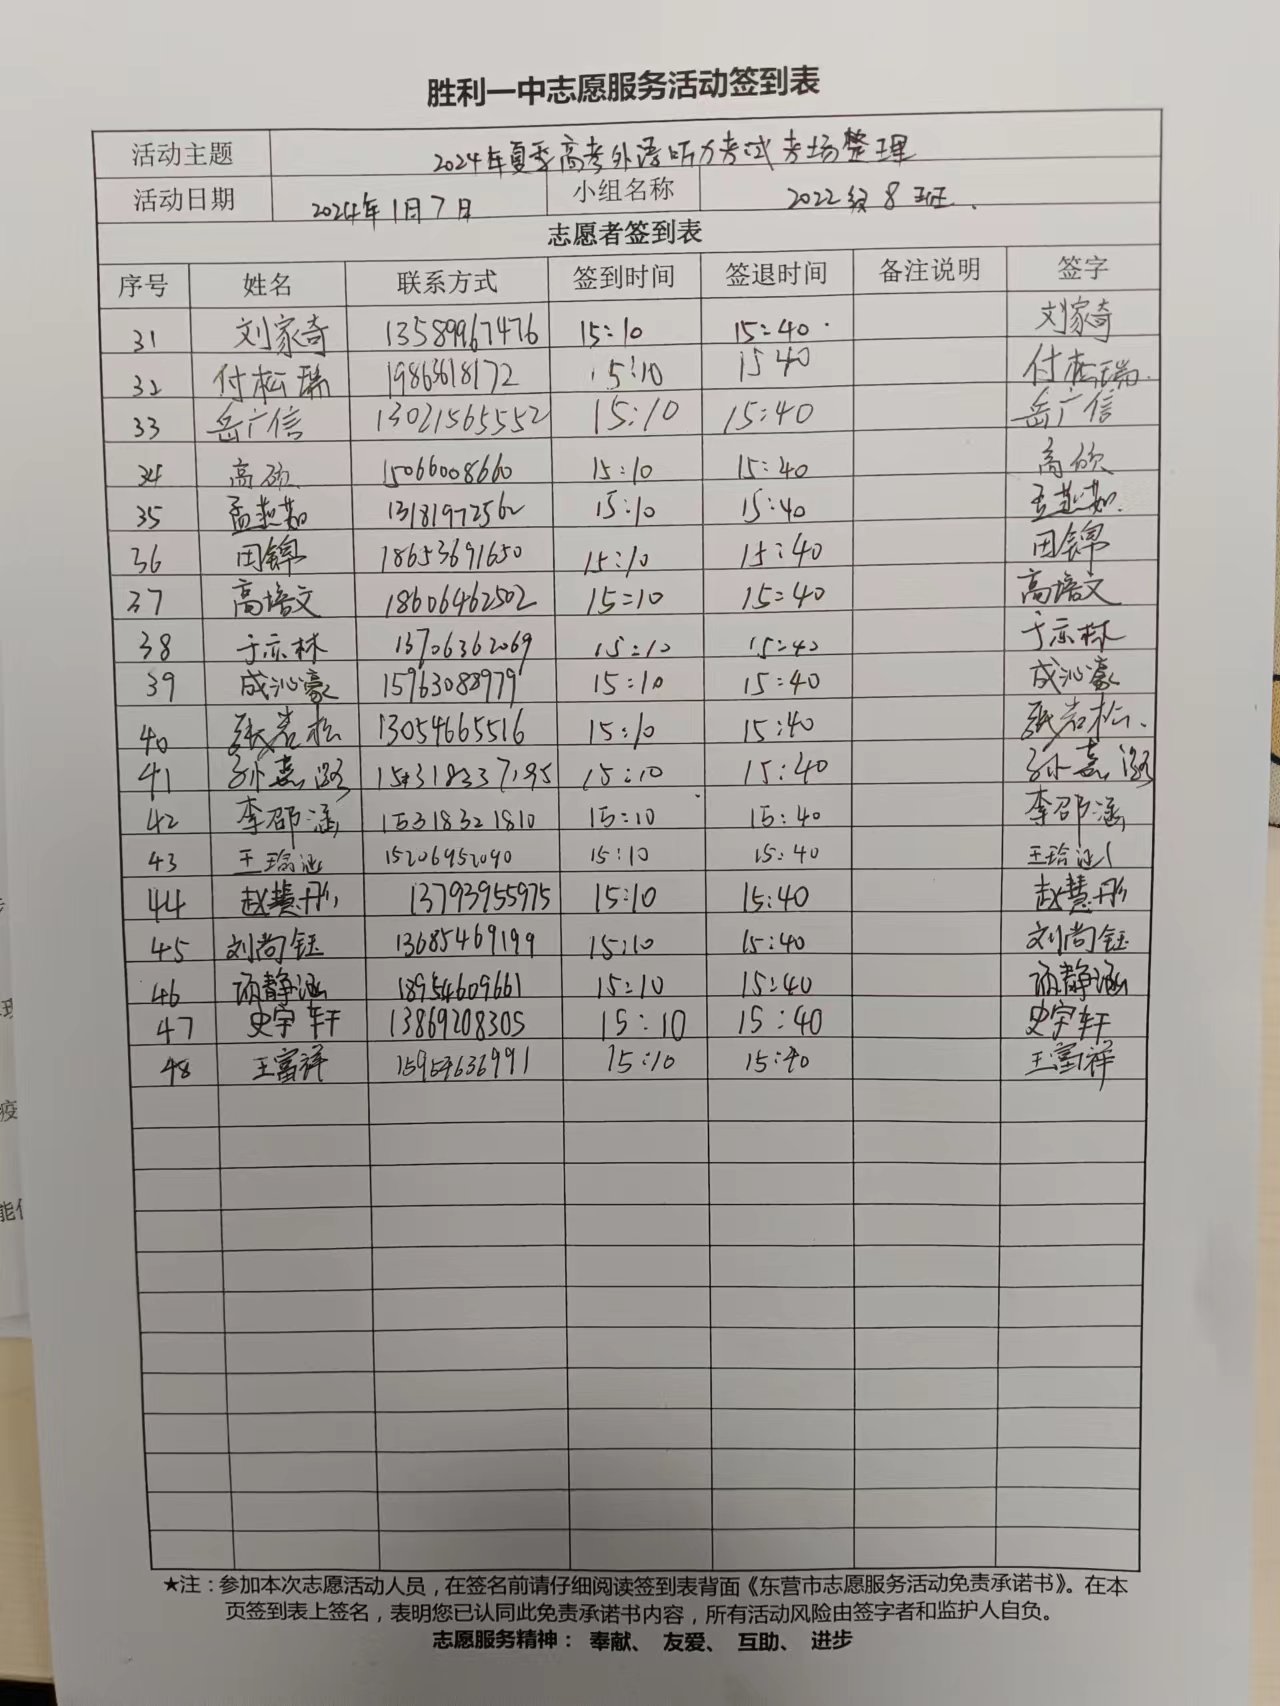 胜利一中志愿服务活动签到表
活动主题 2024年夏季高考外语听力考试考场整理
活动日期 2024年1月7日 小组名称 2022级8班.
志愿者签到表
序号 姓名 联系方式 签到时间 签退时间 备注说明 签字
31 刘家奇 13589967476 15:10 15:40 刘家奇
32 付松瑞 19863618172 15:10 15 40 付松瑞.
33 岳广信 13021565552 15:10 15:40 岳广信
34 高欣 15066008660 15:10 15:40 高欣
35 孟燕茹 13181972562 15:10 15:40 孟燕茹.
36 田锦 18653691650 15:10 15:40 田锦
37 高培文 18606462502 15:10 15:40 高培文
38 于亦林 13706362069 15:10 15:40 于亦林
39 成沁豪 15963088979 15:10 15:40 成沁豪
40 张岩松 13054665516 15:10 15:40 张岩松.
41 孙嘉潞 15:10 15:40 孙嘉潞
42 李邵涵 15318321810 15:10 15:40 李邵涵
43 15206952090 15:10 15:40
44 赵慧彤 13793955975 15:10 15:40 赵慧彤
45 刘尚钰 13685469199 15:10 15:40 刘尚钰
46 静涵 18954609661 15:10 15:40 静涵
47 史宇轩 13869208305 15:10 15:40 史宇轩
48 王富祥 15954636991 15:10 15:40 王富祥
★注：参加本次志愿活动人员，在签名前请仔细阅读签到表背面《东营市志愿服务活动免责承诺书》。在本
页签到表上签名，表明您已认同此免责承诺书内容，所有活动风险由签字者和监护人自负。
志愿服务精神： 奉献、 友爱、 互助、 进步